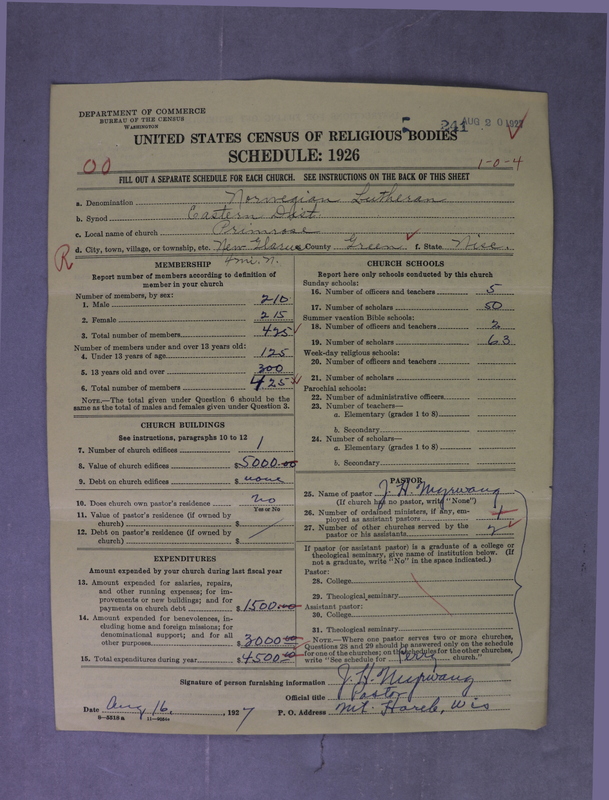 DEPARTMENT OF COMMERCE
BUREAU OF THE CENSUS
WASHINGTON
241 AUG 20 1927
UNITED STATES CENSUS OF RELIGIOUS BODIES
SCHEDULE: 1926
00
1-0-4
FILL OUT A SEPARATE SCHEDULE FOR EACH CHURCH. SEE INSTRUCTIONS ON THE BACK OF THIS SHEET
a. Denomination Norwegian Lutheran
b. Synod Eastern Dist.
c. Local name of church Primrose
d. City, town, village, or township, etc. New Glarus County Green f. State Wisc.
R
4 mi. N.
MEMBERSHIP
Report number of members according to definition of member in your church
Number of members, by sex:
1. Male 210
2. Female 215
3. Total number of members 425
Number of members under and over 13 years old:
4. Under 13 years of age 125
5. 13 years old and over 300
6. Total number of members 425
NOTE.—The total given under Question 6 should be the same as the total of males and females given under Question 3.
CHURCH BUILDINGS
See instructions, paragraphs 10 to 12
7. Number of church edifices 1
8. Value of church edifices $5000.00
9. Debt on church edifices $ none
10. Does church own pastor's residence no
Yes or No
11. Value of pastor's residence (if owned by church) $
12. Debt on pastor's residence (if owned by church) $
EXPENDITURES
Amount expended by your church during last fiscal year
13. Amount expended for salaries, repairs, and other running expenses; for improvements or new buildings; and for payments on church debt $1500.00
14. Amount expended for benevolences, including home and foreign missions; for denominational support; and for all other purposes $3000.00
15. Total expenditures during year $4500.00
CHURCH SCHOOLS
Report here only schools conducted by this church
Sunday schools:
16. Number of officers and teachers 5
17. Number of scholars 50
Summer vacation Bible schools:
18. Number of officers and teachers 2
19. Number of scholars 63
Week-day religious schools:
20. Number of officers and teachers
21. Number of scholars
Parochial schools:
22. Number of administrative officers
23. Number of teachers—
a. Elementary (grades 1 to 8)
b. Secondary
24. Number of scholars—
a. Elementary (grades 1 to 8)
b. Secondary
PASTOR
25. Name of pastor J. H. Myrwang
(If church has no pastor, write "None")
26. Number of ordained ministers, if any, employed as assistant pastors
27. Number of other churches served by the pastor or his assistants 2
If pastor (or assistant pastor) is a graduate of a college or theological seminary, give name of institution below. (If not a graduate, write "No" in the space indicated.)
Pastor:
28. College
29. Theological seminary
Assistant pastor:
30. College
31. Theological seminary
NOTE.—Where one pastor serves two or more churches, Questions 28 and 29 should be answered only on the schedule for one of the churches; on the schedules for the other churches, write "See schedule for Perry church."
Signature of person furnishing information J. H. Myrwang
Official title Pastor
Date Aug 16, 1927 P. O. Address Mt. Horeb, Wis